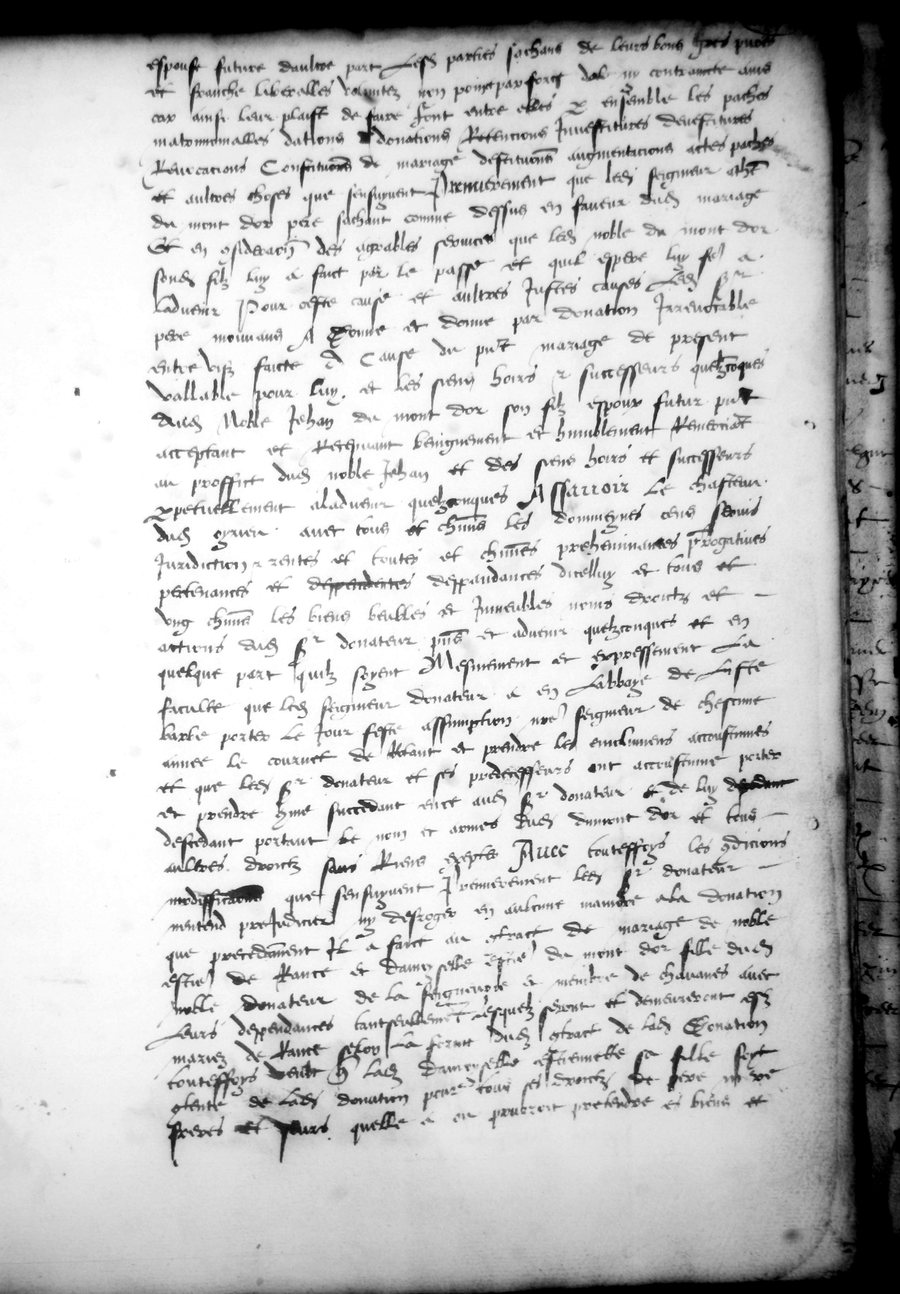 espouse future daultre part Lesd parties sachans de leurs bons grés pures
et franche liberalles voluntez non point par force dol ny contraincte ains
car ainsi leur plaist de faire font entre elles & ensemble les paches
matrimonialles dations donations Retencions Investitures devestitures
Revocacions Constitutions de mariage destitutions augmentacions actes paches
et aultres choses que sensuyvent Premierement que led seigneur
du mont dor pere sachant comme dessus en faveur dud mariage
Et en consideracion des agreables services que led noble du mont dor
sond filz luy a faict par le passe et quil espere luy a
ladvenir Pour ceste cause et aultres Justes causes Led sr
pere mouvans A Donne et donne par donation Irrevocable
entre vifz faicte A Cause du pnt mariage de present
vallable pour luy et les siens hoirs & successeurs quelzconques
Aud Noble Jehan du mont dor son filz espoux futur pnt
acceptant et Recepvant benignement et humblement Remerciant
au proffict dud noble Jehan et des siens hoirs et successeurs
perpetuellement aladvenir quelzconques Assavoir Le chasteau
dud avec tous et chuns les dommeynes cens servis
Juridiction & rentes et toutes et chunes preheminances prerogatives
pertenances et despendentes deppandances dicelluy et tous et
ung chuns les biens meubles et Immeubles noms droictz et
actions dud sr donateur pns et advenir quelzconques et en
quelque part quilz soyent Mesmement et expressement La
faculte que led seigneur donateur a en Labbaye de Lisle
barbe porter Le Jour feste assumption nre seigneur de chescune
annee le cournet de Rolant et prendre les emolumens accoustumes
et que led sr donateur et ses predecesseurs ont accoustume porter
et prendre comme succedant en ce aud sr donateur et de luy
descedant portant le nom et armes dud dumont dor et tous
aultres droictz sans Riens excepter Avec touteffoys les condicions
modifficacions que sensuyvent Premierement led sr donateur
nentend prejudicier ny desroger en aulcune maniere ala donation
que precedament Il a faict au contract de mariage de noble
de Rance et damoyselle du mont dor fille dud
noble donateur de la seigneurye et membre de chavanes avec
Leurs dependances tantseullement Lesquelz seront et demeureront esd
mariez de Rance selon La forme dud contract de lad Donation
touteffoys veult que lad damoyselle estiennette sa fille soyt
contente de lad donation pour tous ses droictz de pere mere
freres et seurs quelle a ou pourroit pretendre es biens et